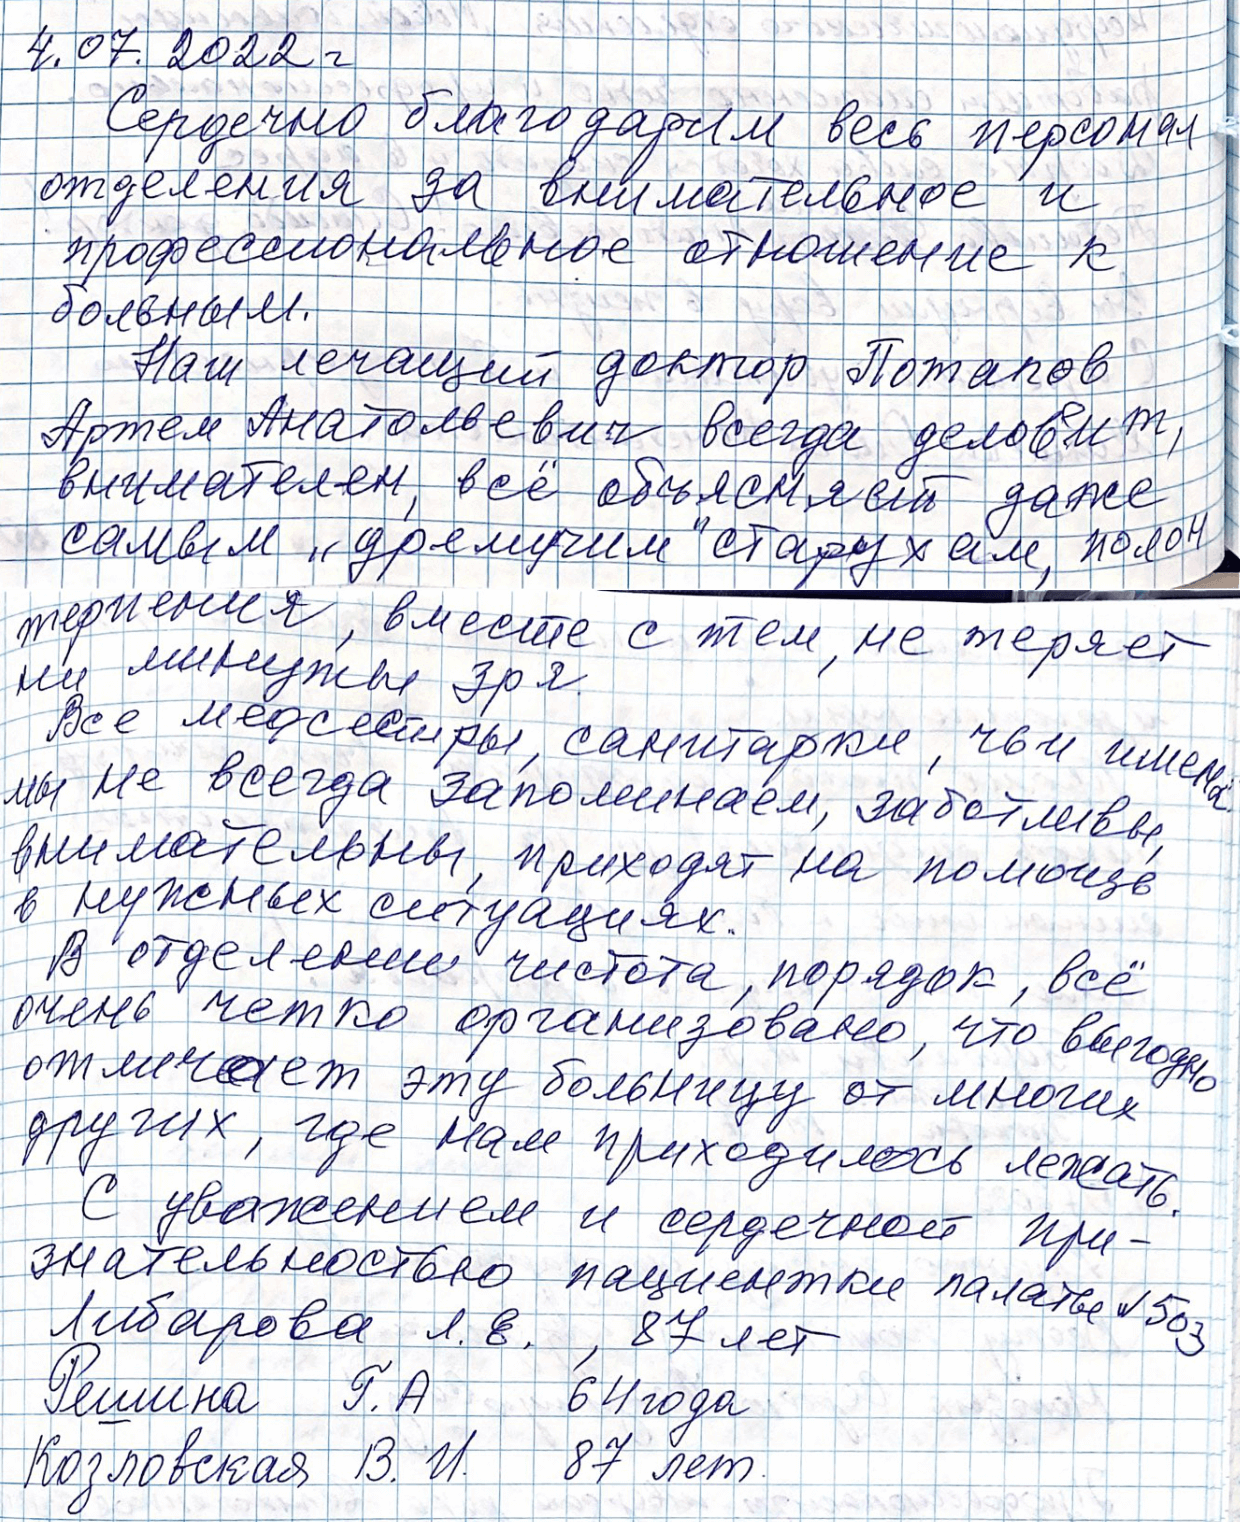 4.07.2022 г
Сердечно благодарим весь персонал
отделения за внимательное и
профессиональное отношение к
больным.
Наш лечащий доктор Потапов
Артем Анатольевич всегда деловит,
внимателен, всё объясняет даже
самым „дремучим" старухам, полон
терпения, вместе с тем, не теряет
ни минуты зря.
Все медсестры, санитарки, чьи имена
мы не всегда запоминаем, заботливы,
внимательны, приходят на помощь
в нужных ситуациях.
В отделении чистота, порядок, всё
очень четко организовано, что выгодно
отличает эту больницу от многих
других, где нам приходилось лежать.
С уважением и сердечной при-
знательностью пациентки палаты №503
Либарова Л.Е., 87 лет
Решина Г.А 64 года
Козловская В.И. 87 лет.